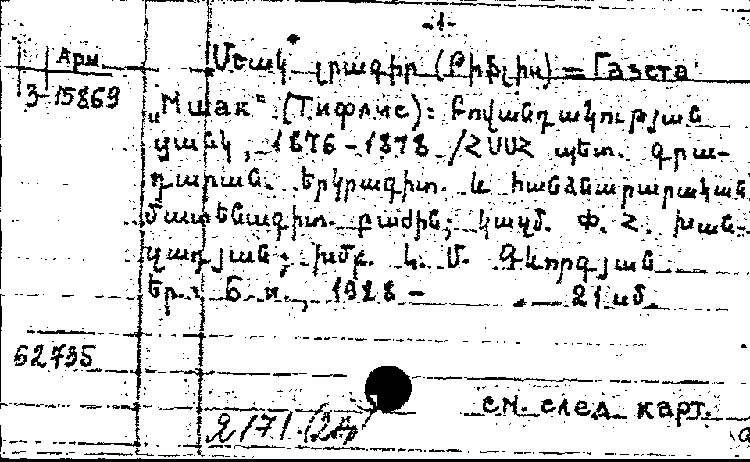 -1-
Арм.
3-15869
Մշակ լրագիր (Թիֆլիս) = Газета
„Мшак“ (Тифлис): Բովանդակության
ցանկ, 1876-1878 /ՀՍՍՀ պետ. գրա-
դարան. Երկրագիտ. և համձնարարական
մատենագիտ. բաժին; կազմ. Փ. Հ. Խան-
զադյան; խմբ. Կ. Մ. Գևորգյան
Եր.: Б. и., 1988 - . — 21 սմ.
62735
см. след. карт.
2171.